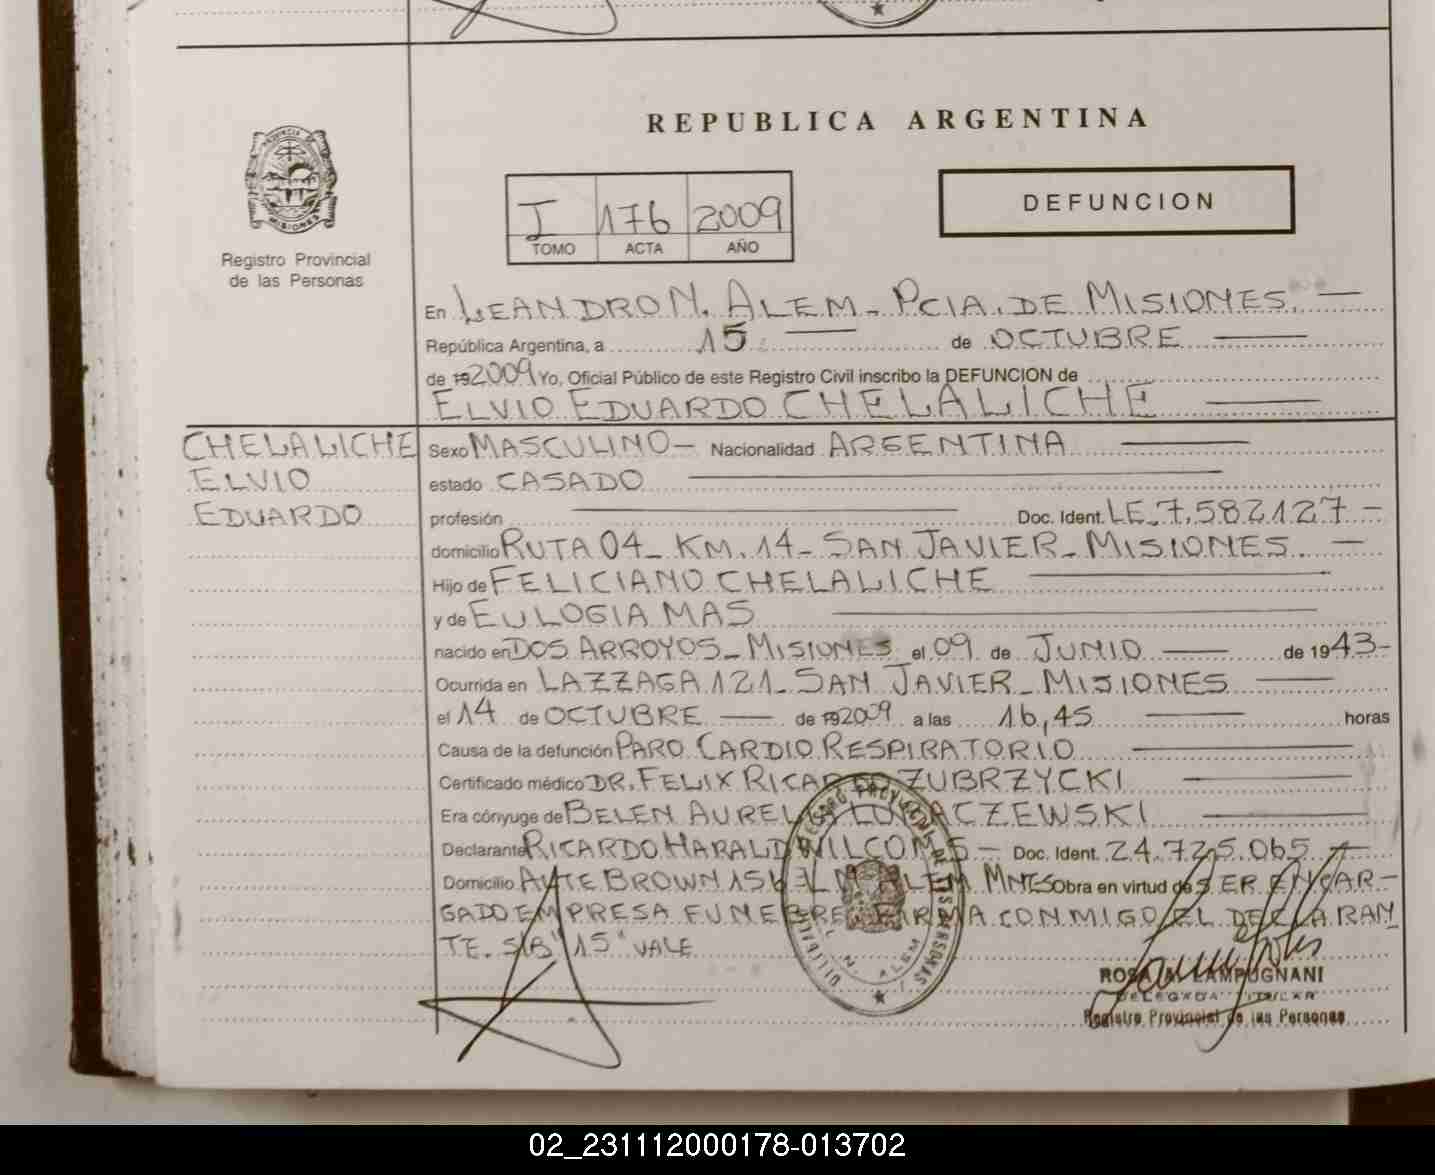 REPUBLICA ARGENTINA
PROVINCIA DE MISIONES
Registro Provincial
de las Personas
I 176 2009
TOMO ACTA AÑO
DEFUNCION
En LEANDRO N. ALEM - PCIA. DE MISIONES. —
República Argentina, a 15 — de OCTUBRE —
de 19 2009 Yo, Oficial Público de este Registro Civil inscribo la DEFUNCION de
ELVIO EDUARDO CHELALICHE —
CHELALICHE
ELVIO
EDUARDO
Sexo MASCULINO — Nacionalidad ARGENTINA —
estado CASADO —
profesión — Doc. Ident. LE. 7.582.127 -
domicilio RUTA 04 - KM. 14 - SAN JAVIER - MISIONES. —
Hijo de FELICIANO CHELALICHE —
y de EULOGIA MAS —
nacido en DOS ARROYOS - MISIONES el 09 de JUNIO — de 1943 -
Ocurrida en LAZZAGA 121 - SAN JAVIER - MISIONES —
el 14 de OCTUBRE — de 19 2009 a las 16,45 — horas
Causa de la defunción PARO CARDIO RESPIRATORIO —
Certificado médico DR. FELIX RICARDO ZUBRZYCKI —
Era cónyuge de BELEN AUREL CZEWSKI —
Declarante RICARDO HARALD WILCOMS — Doc. Ident. 24.725.065 —
Domicilio ALTE BROWN 156 - L.N. ALEM MNES Obra en virtud de SER ENCAR-
GADO EMPRESA FUNEBRE. FIRMA CONMIGO EL DECLARAN
TE. S/B "15" VALE
L. N. ALEM
ROSA A. LAMPUGNANI
DELEGADA TITULAR
Registro Provincial de las Personas
02_231112000178-013702